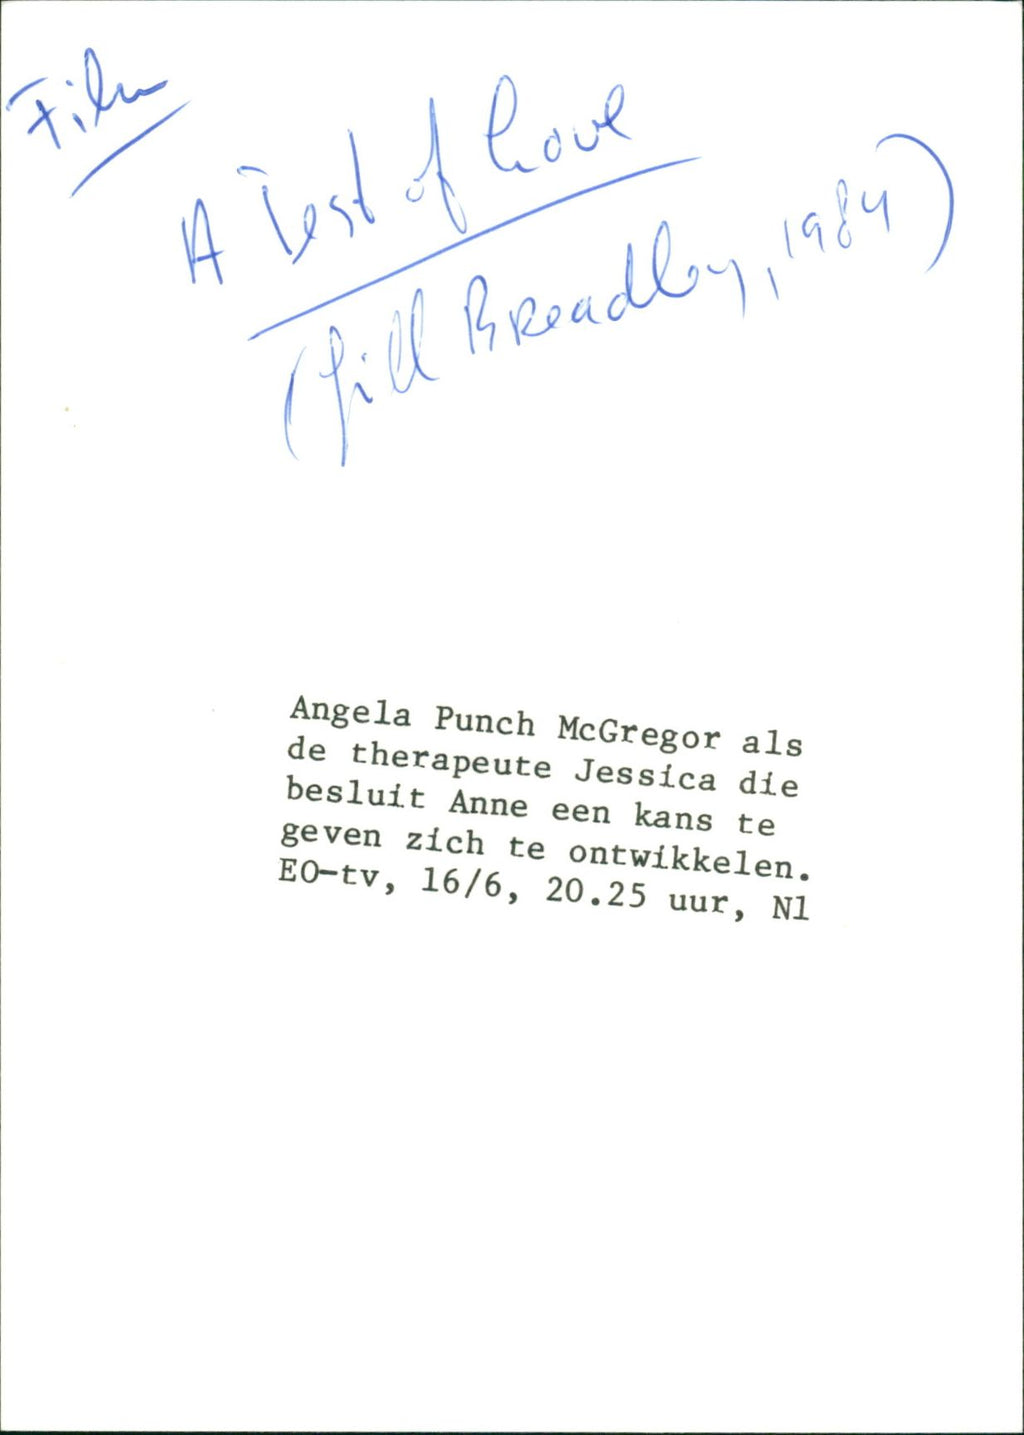 Film
A Test of Love
(Jill Breadley, 1984)
Angela Punch McGregor als
de therapeute Jessica die
besluit Anne een kans te
geven zich te ontwikkelen.
EO-tv, 16/6, 20.25 uur, Nl